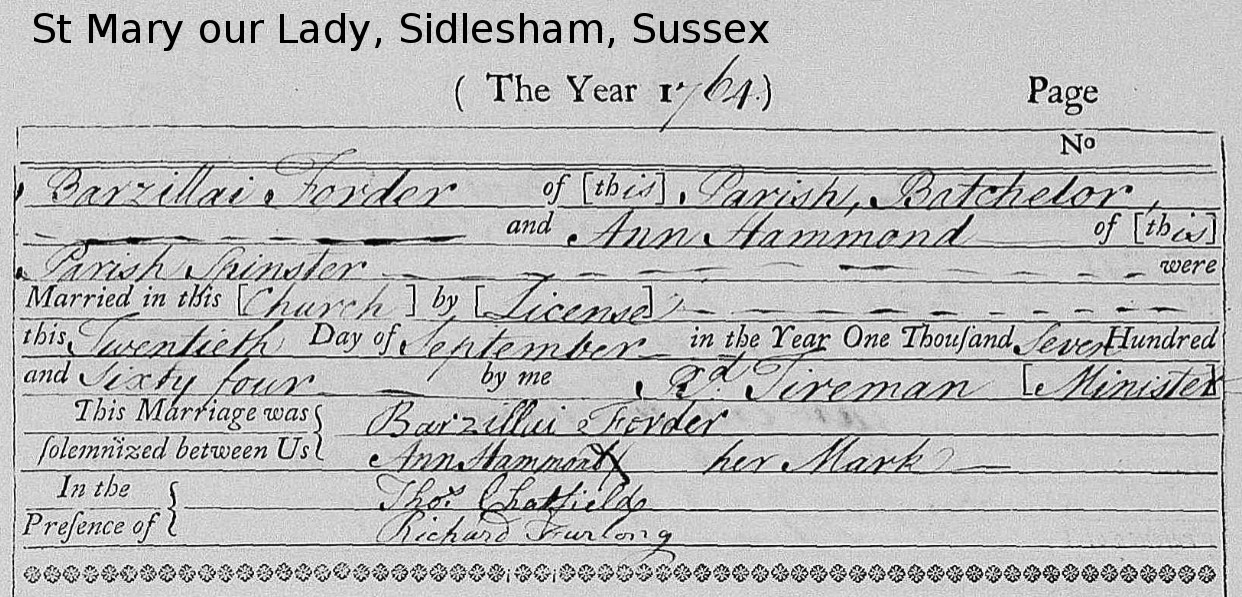 St Mary our Lady, Sidlesham, Sussex
( The Year 1764.) Page
No
Barzillai Forder of [this] Parish, Batchelor,
and Ann Hammond of [this]
Parish Spinster were
Married in this [Church] by [License]
this Twentieth Day of September in the Year One Thouſand Seven Hundred
and Sixty four by me Rd. Tireman [Minister
This Marriage was { Barzillai Forder
ſolemnized between Us { Ann Hammond X her Mark
In the { Thos. Chatfield
Preſence of { Richard Furlong